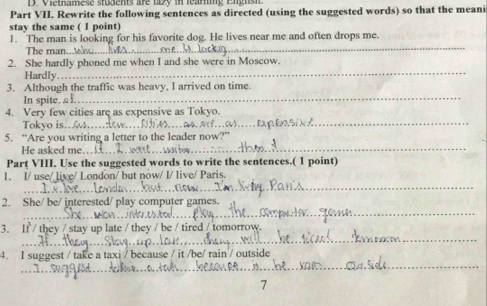 D. Vietnamese students are lazy in learning English.
Part VII. Rewrite the following sentences as directed (using the suggested words) so that the meani
stay the same ( 1 point)
1. The man is looking for his favorite dog. He lives near me and often drops me.
The man who lives me is looking
2. She hardly phoned me when I and she were in Moscow.
Hardly
3. Although the traffic was heavy, I arrived on time.
In spite of
4. Very few cities are as expensive as Tokyo.
Tokyo is as few cities as as expensive
5. "Are you writing a letter to the leader now?"
He asked me if I were writing then
Part VIII. Use the suggested words to write the sentences.( 1 point)
1. I/ use/ live/ London/ but now/ I/ live/ Paris.
London but now I'm living Paris
2. She/ be/ interested/ play computer games.
She interested play the computer games
3. If / they / stay up late / they / be / tired / tomorrow.
If they stay up late, they will be tired tomorrow
4. I suggest / take a taxi / because / it /be/ rain / outside
I suggest a taxi because is be rain outside
7